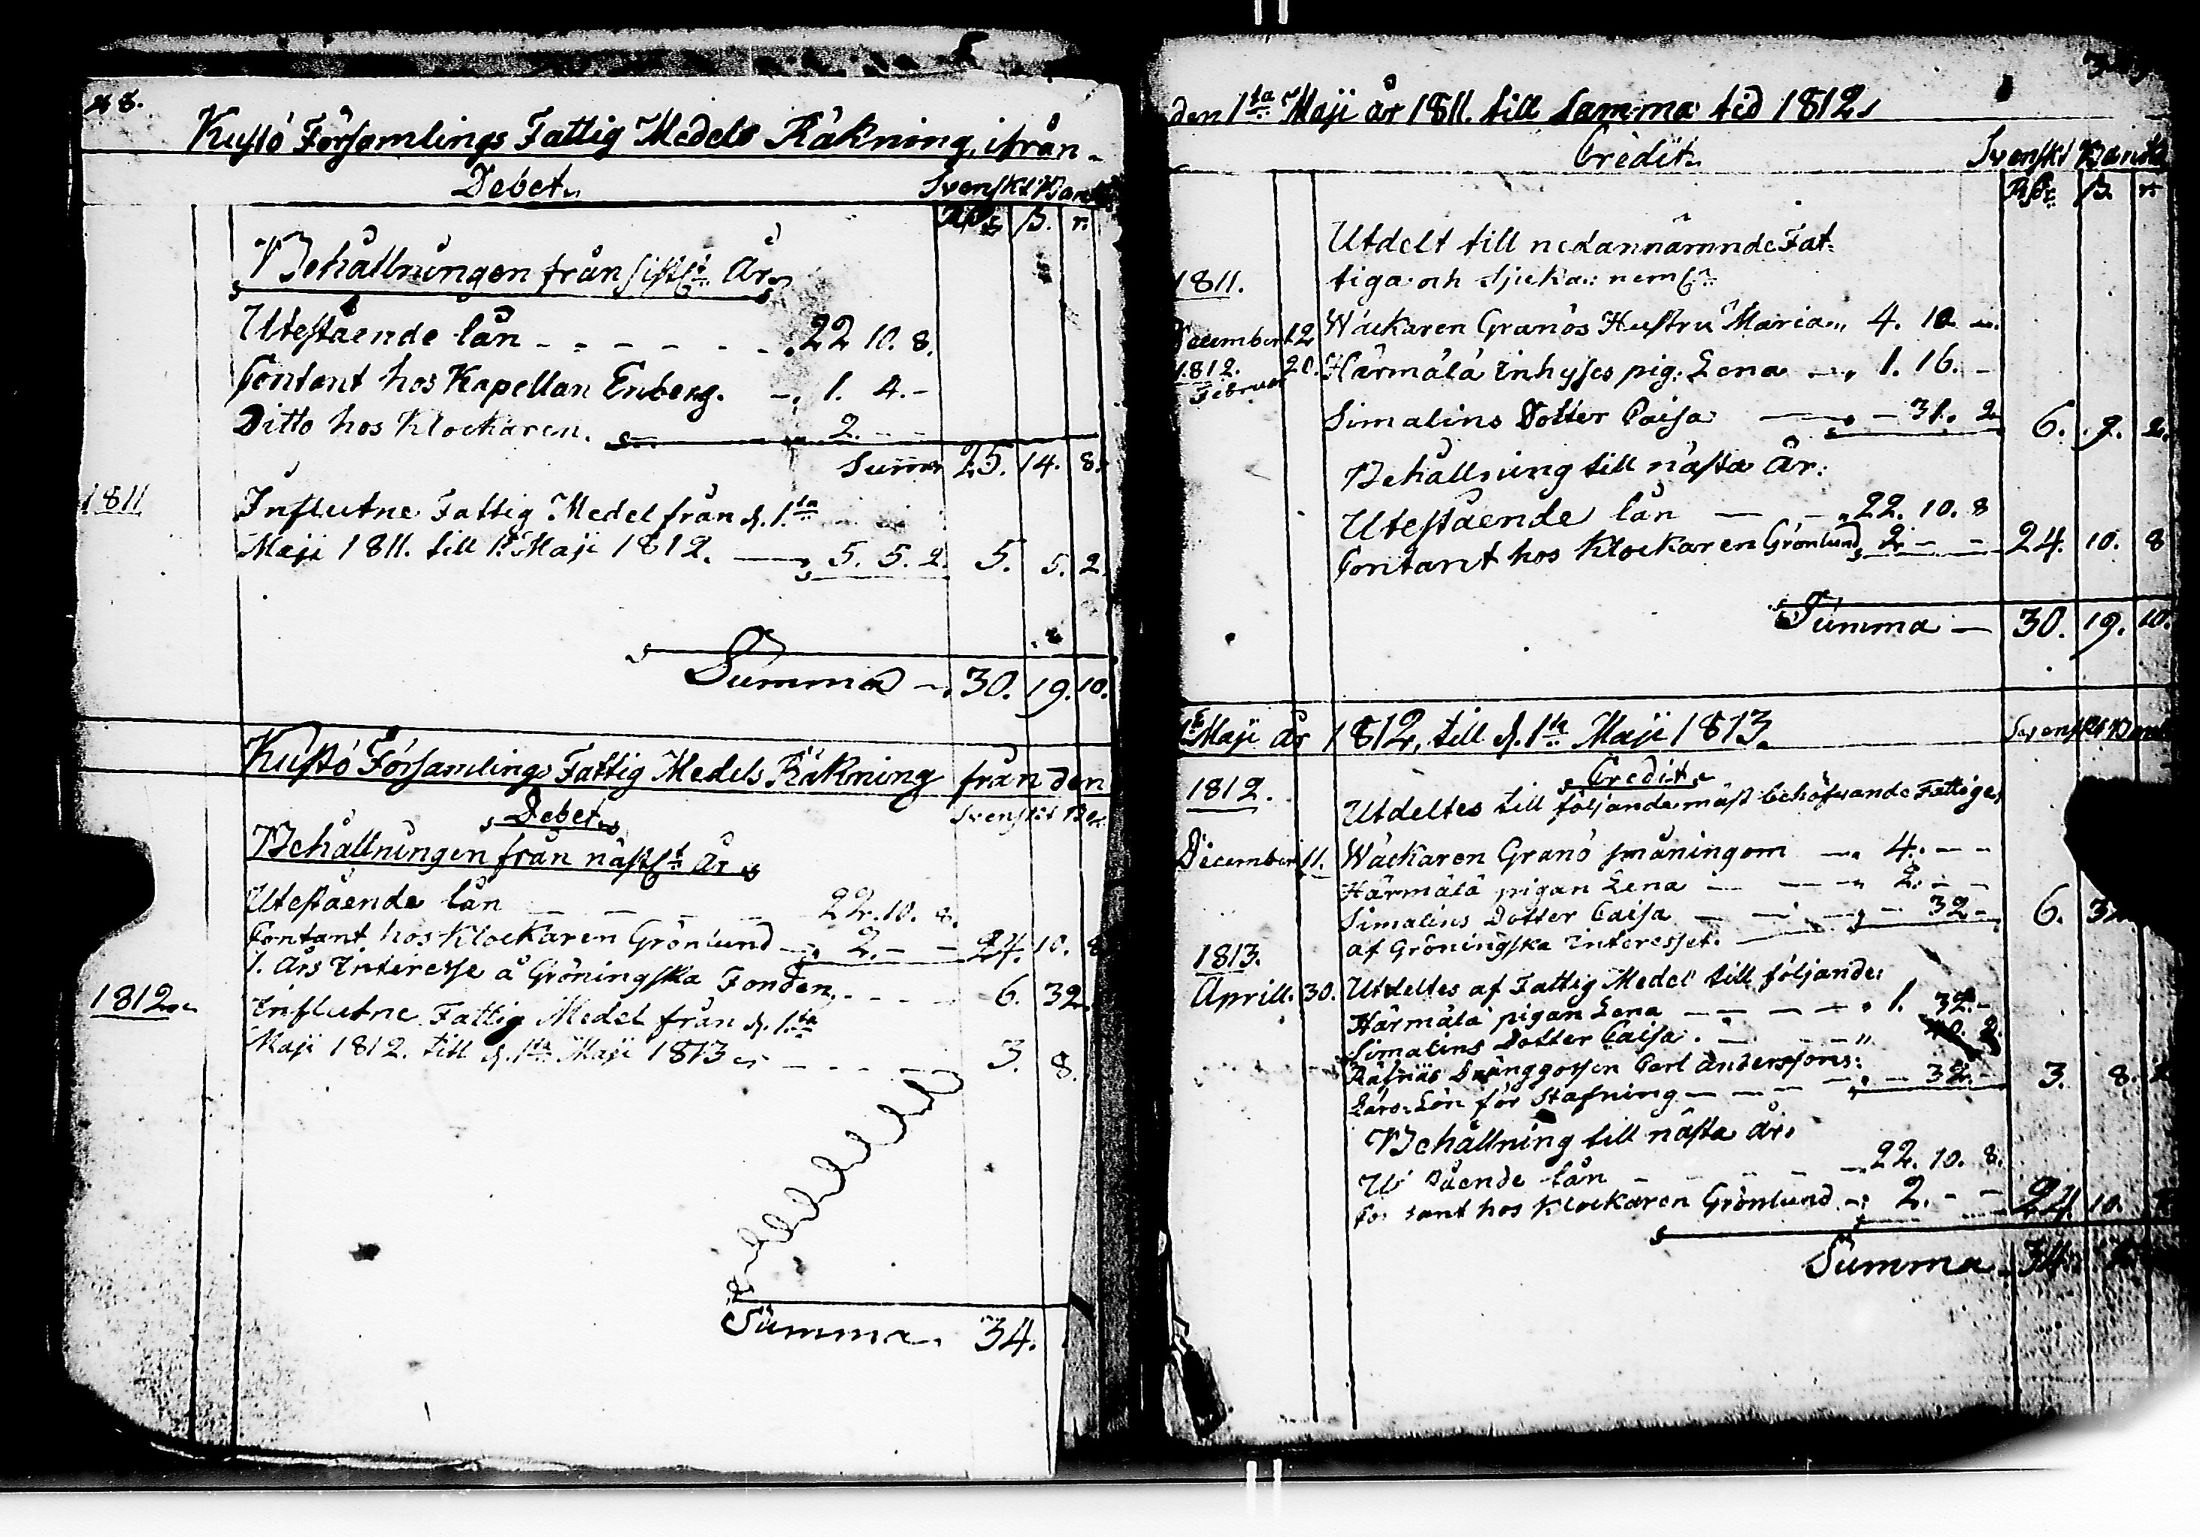 28.
Kustö Församlings Fattig Medels Räkning, ifrån
Debet.
Svenskt Banco
RDr ß. r.
Behållningen från sistl. År
Utestående lån - - - - - - 22 10. 8.
Contant hos Kapellan Enberg. - 1. 4. -
Ditto hos Klockaren. 2. - -
Summa 25. 14. 8.
1811
Influtne Fattig Medel från d. 1.ta
Maji 1811. till 1. Maji 1812. — 5. 5. 2. 5. 5. 2.
Summa — 30. 19. 10.
Kustö Församlings Fattig Medels Räkning från den
Debet.
Svenskt
Behållningen från nästl. År
Utestående lån - - - - 22. 10. 8.
Contant hos Klockaren Grönlund - 2. - - 24. 10. 8
1. Års Interesse å Gröningska Fonden. - - - - 6. 32.
1812.
Influtne Fattig Medel från d. 1.ta
Maji 1812. till d. 1ta Maji 1813 - - - - 3. 8.
Summa. 34.
den 1ta Maji år 1811. till samma tid 1812.
Credit.
Svenskt Banco
RDr ß. r.
Utdelt till nedannämnde Fat-
1811.
tiga och sjuka: neml.
December 12 Wäckaren Granös Hustru Maria 4. 10 -
1812. Februari 20. Härmälä Inhyses pig. Lena - 1. 16. -
Simalins Dotter Caisa — - 31. 2 6. 9. 2.
Behållning till nästa År:
Utestående lån — - 22. 10. 8
Contant hos Klockaren Grönlund 2 - - 24. 10. 8
Summa — 30. 19. 10.
1 Maji år 1812, till d. 1ta Maji 1813.
Svenskt Banco
Credit
1812.
Utdeltes till följande mäst behöfvande Fattige,
December 11. Wäckaren Granö småningom - 4. - -
Härmälä pigan Lena - - - 2. - -
Simalins Dotter Caisa - - - 32 - 6. 32
af Gröningska interesset.
1813.
Aprill. 30. Utdeltes af Fattig Medel till följande:
Härmälä pigan Lena - - - - 1. 32. -
Simalins Dotter Caisa. - - -
Dränggossen Carl Anderssons
Läro-Lön för Stafning - - - - 32. - 3. 8.
Behållning till nästa år.
Utestående lån - - - - 22. 10. 8.
Contant hos Klockaren Grönlund - 2. - - 24. 10.
Summa. 34.